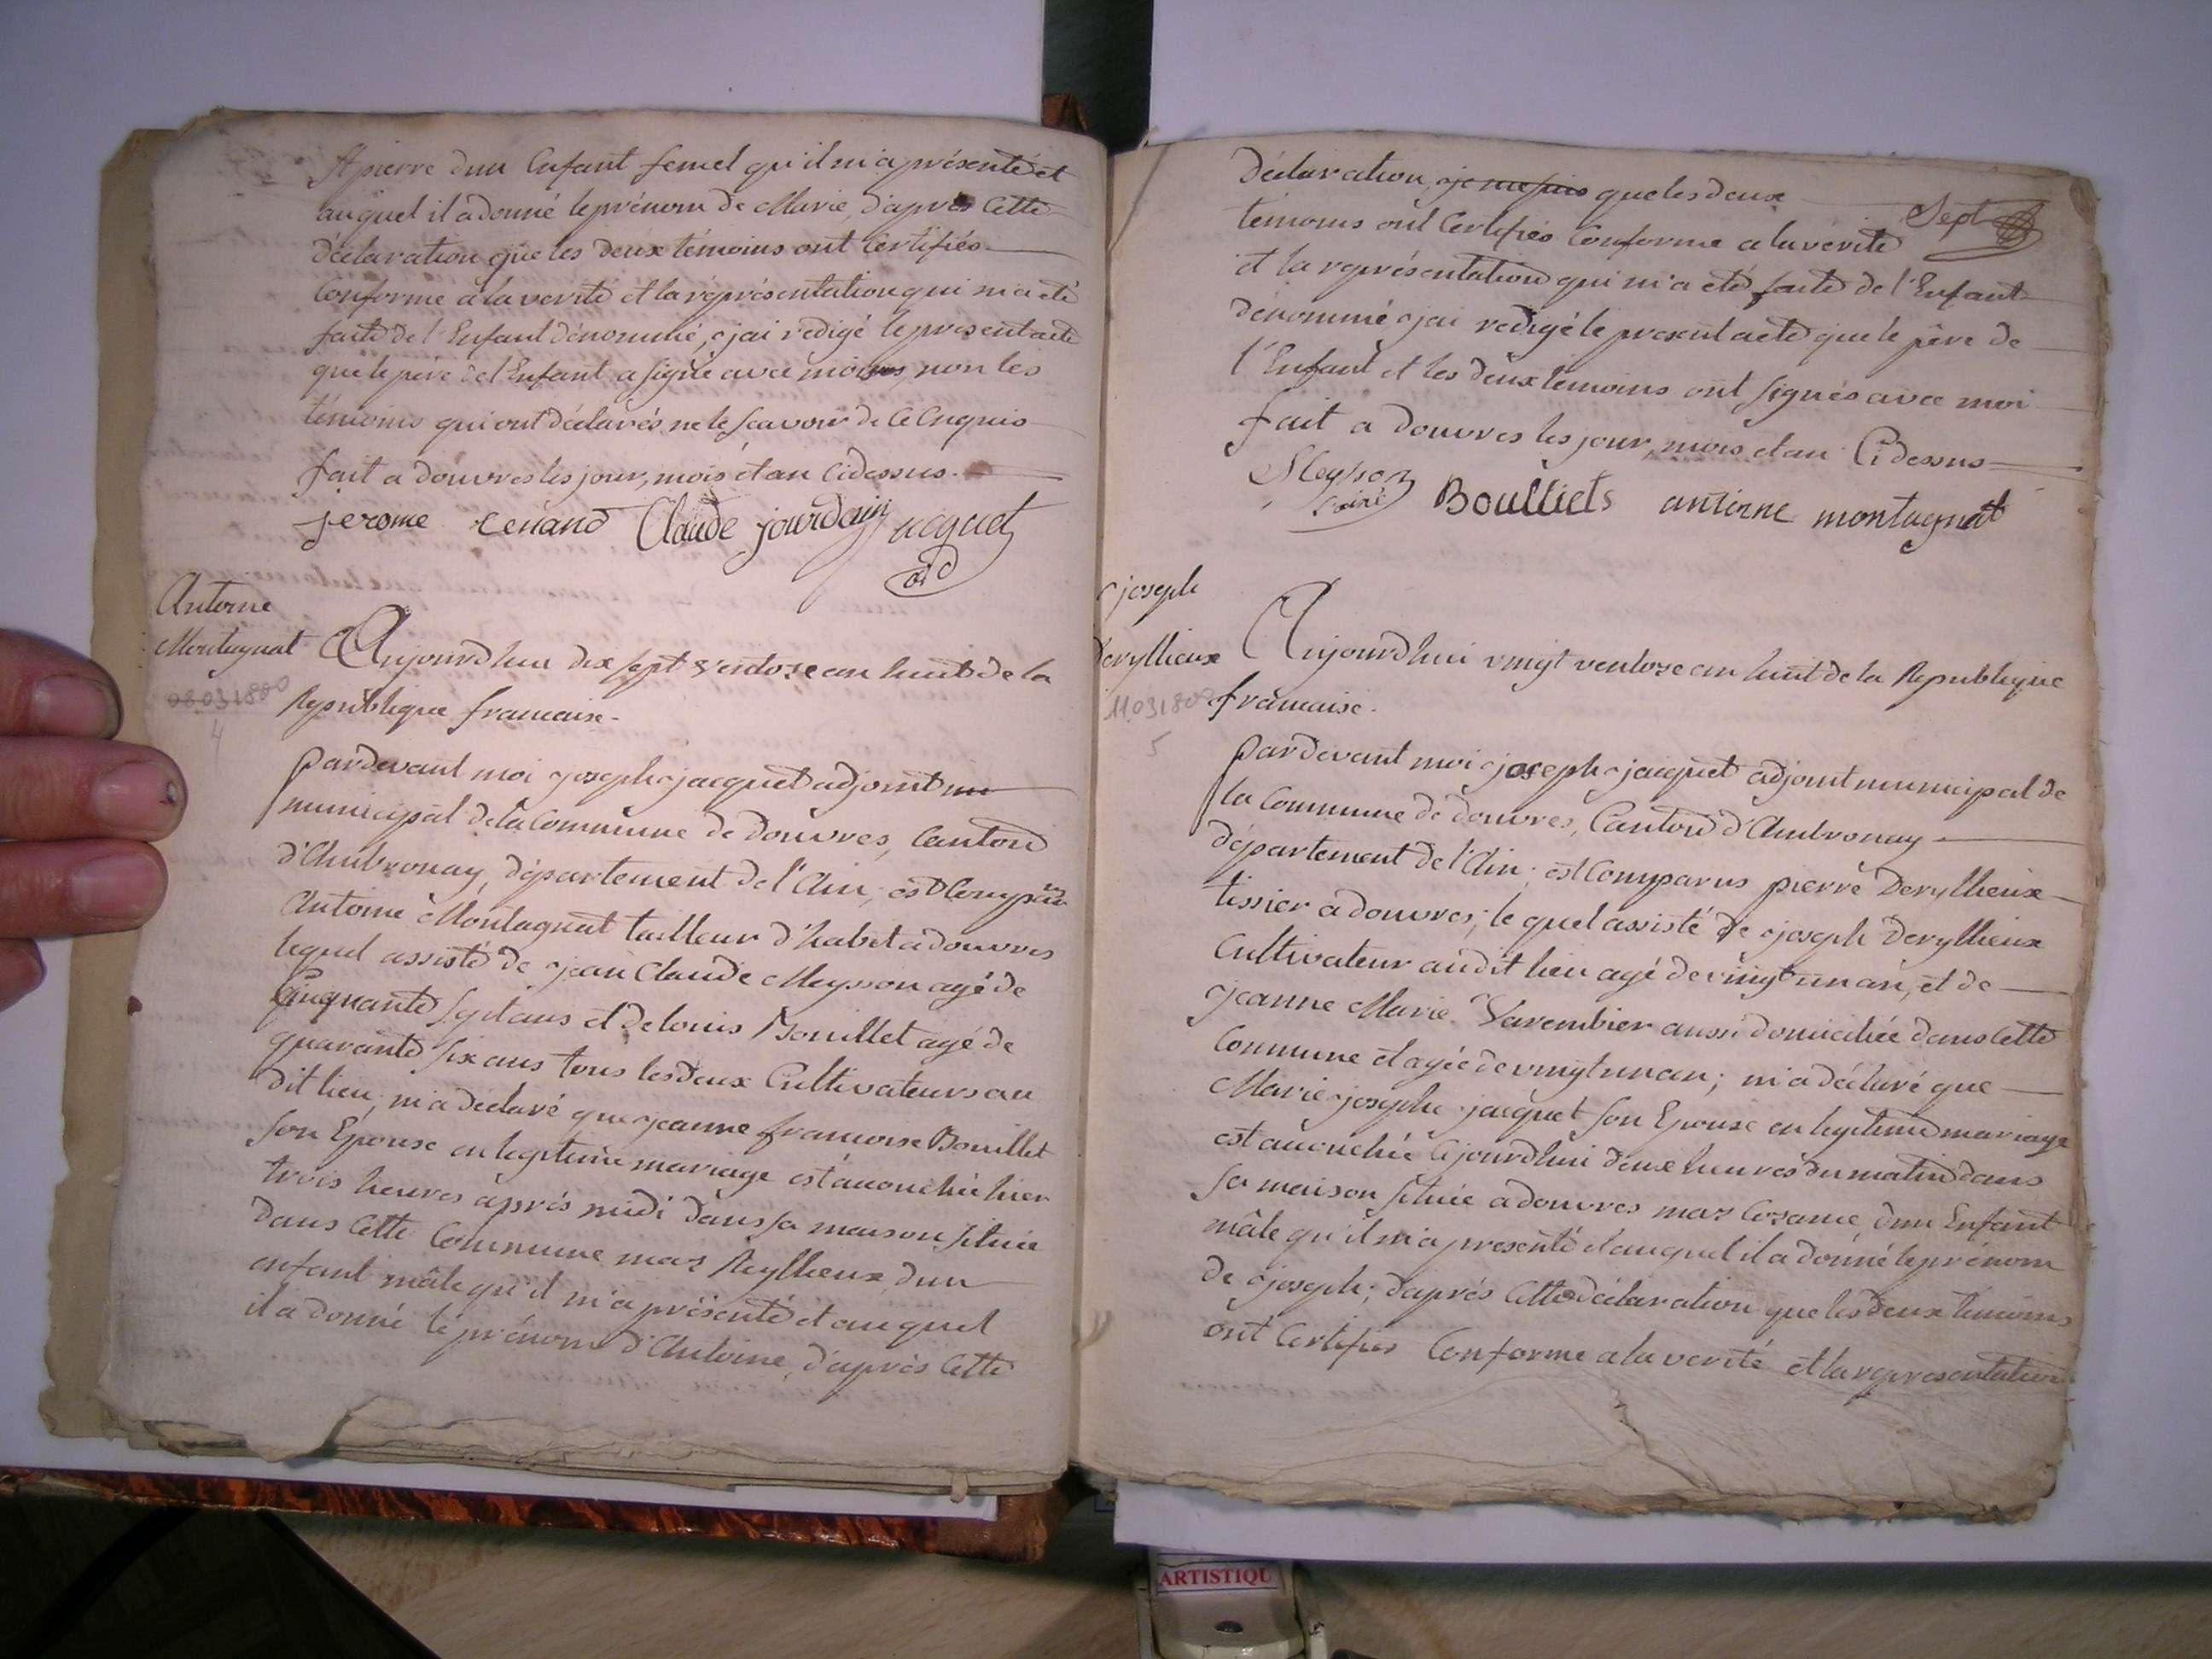 St pierre dun Enfant femel qu'il m'a présenté et
auquel il a donné le prénom de Marie, d'après Cette
déclaration que les deux témoins ont Certifiés
Conforme a la verité et la représentation qui m'a été
faite de l'Enfant dénommé, j'ai redigé le present acte
que le père de l'Enfant a signé avec moi non les
témoins qui ont déclarés ne le scavoir de ce Enquis
fait a douvres les jour, mois et an Cidessus.
jerome renand Claude jourdain jacquet
adj
Antoine
Montagnat
08031800
4
Aujourdhui dix sept ventose an huit de la
Republique francaise.
pardevant moi joseph jacquet adjoint mu
municipal de la Commune de douvres, Canton
d'Ambronay, département de l'Ain, est Comparu
Antoine Montagnat tailleur d'habit a douvres
lequel assisté de jean Claude Meysson agé de
Cinquante sept ans et de louis Bouillet agé de
quarante six ans tous les deux Cultivateurs au
dit lieu, m'a déclaré que jeanne francoise Bouillet
son Epouse en legitime mariage est accouchée hier
trois heures après midi dans sa maison située
dans Cette Commune mas Reyllieux, dun
enfant mâle qu'il m'a présenté et auquel
il a donné le prénom d'Antoine, d'après Cette
Sept
déclaration, je me suis que les deux
témoins ont Certifiés Conforme a la verité
et la représentation qui m'a été faite de l'Enfant
dénommé j'ai redigé le present acte que le père de
l'Enfant et les deux témoins ont signés avec moi
fait a douvres les jour, mois et an Cidessus
Meyson Boulliets antoine montagnat
joseph
Deryllieux
11031800
5
Aujourdhui vingt ventose an huit de la Republique
francaise.
pardevant moi joseph jacquet adjoint municipal de
la Commune de douvres, Canton d'Ambronay
département de l'Ain; est Comparus pierre Deryllieux
tissier a douvres; le quel assisté de joseph Deryllieux
Cultivateur audit lieu agé de vingt un an, et de
jeanne Marie Varembier aussi domiciliée dans Cette
Commune et agée de vingt un an; m'a déclaré que
Marie josephe jacquet son Epouse en legitime mariage
est accouchée Cejourdhui deux heures du matin dans
sa maison située a douvres mas Cozance, dun Enfant
mâle qu'il m'a presenté et auquel il a donné le prénom
de joseph; d'après Cette déclaration que les deux témoins
ont Certifiés Conforme a la verité et la representation
ARTISTIQU